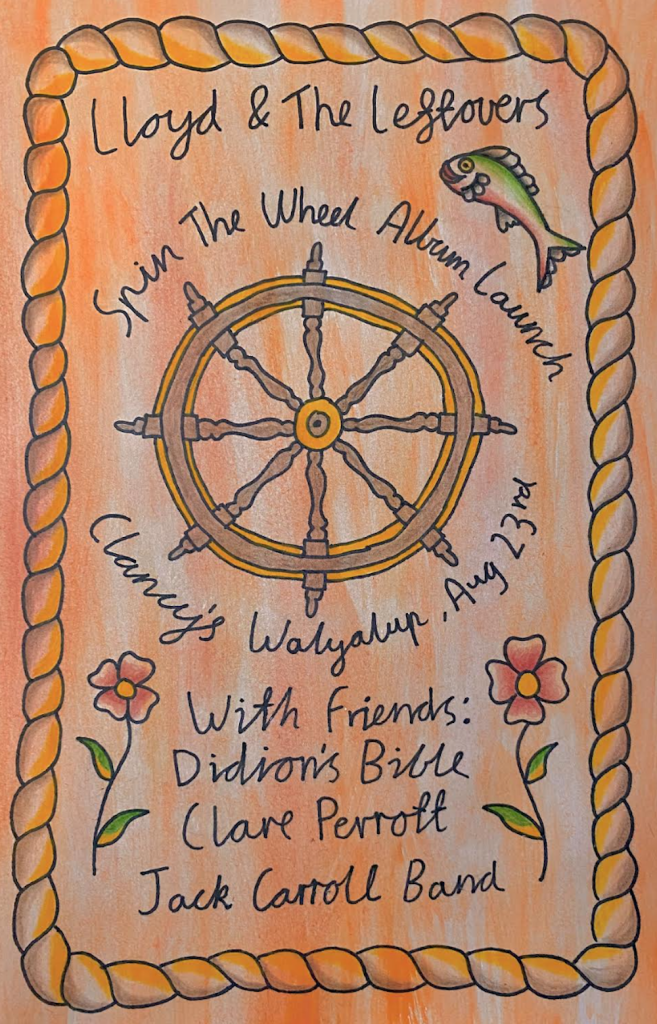 Lloyd & The Leftovers
Spin The Wheel Album Launch
Clancy's Walyalup, Aug 23rd
With Friends:
Didion's Bible
Clare Perrott
Jack Carroll Band